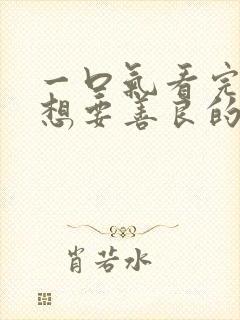 一口氣看完
想要善良的
肖若水